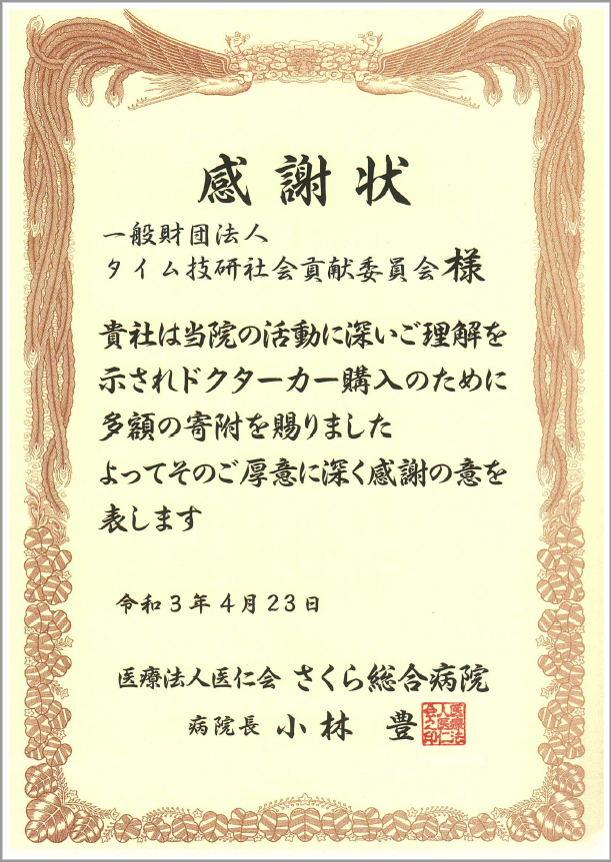 感謝状
一般財団法人
タイム技研社会貢献委員会様
貴社は当院の活動に深いご理解を
示されドクターカー購入のために
多額の寄附を賜りました
よってそのご厚意に深く感謝の意を
表します
令和3年4月23日
医療法人医仁会 さくら総合病院
病院長 小林 豊
医療法
人医仁
会之印